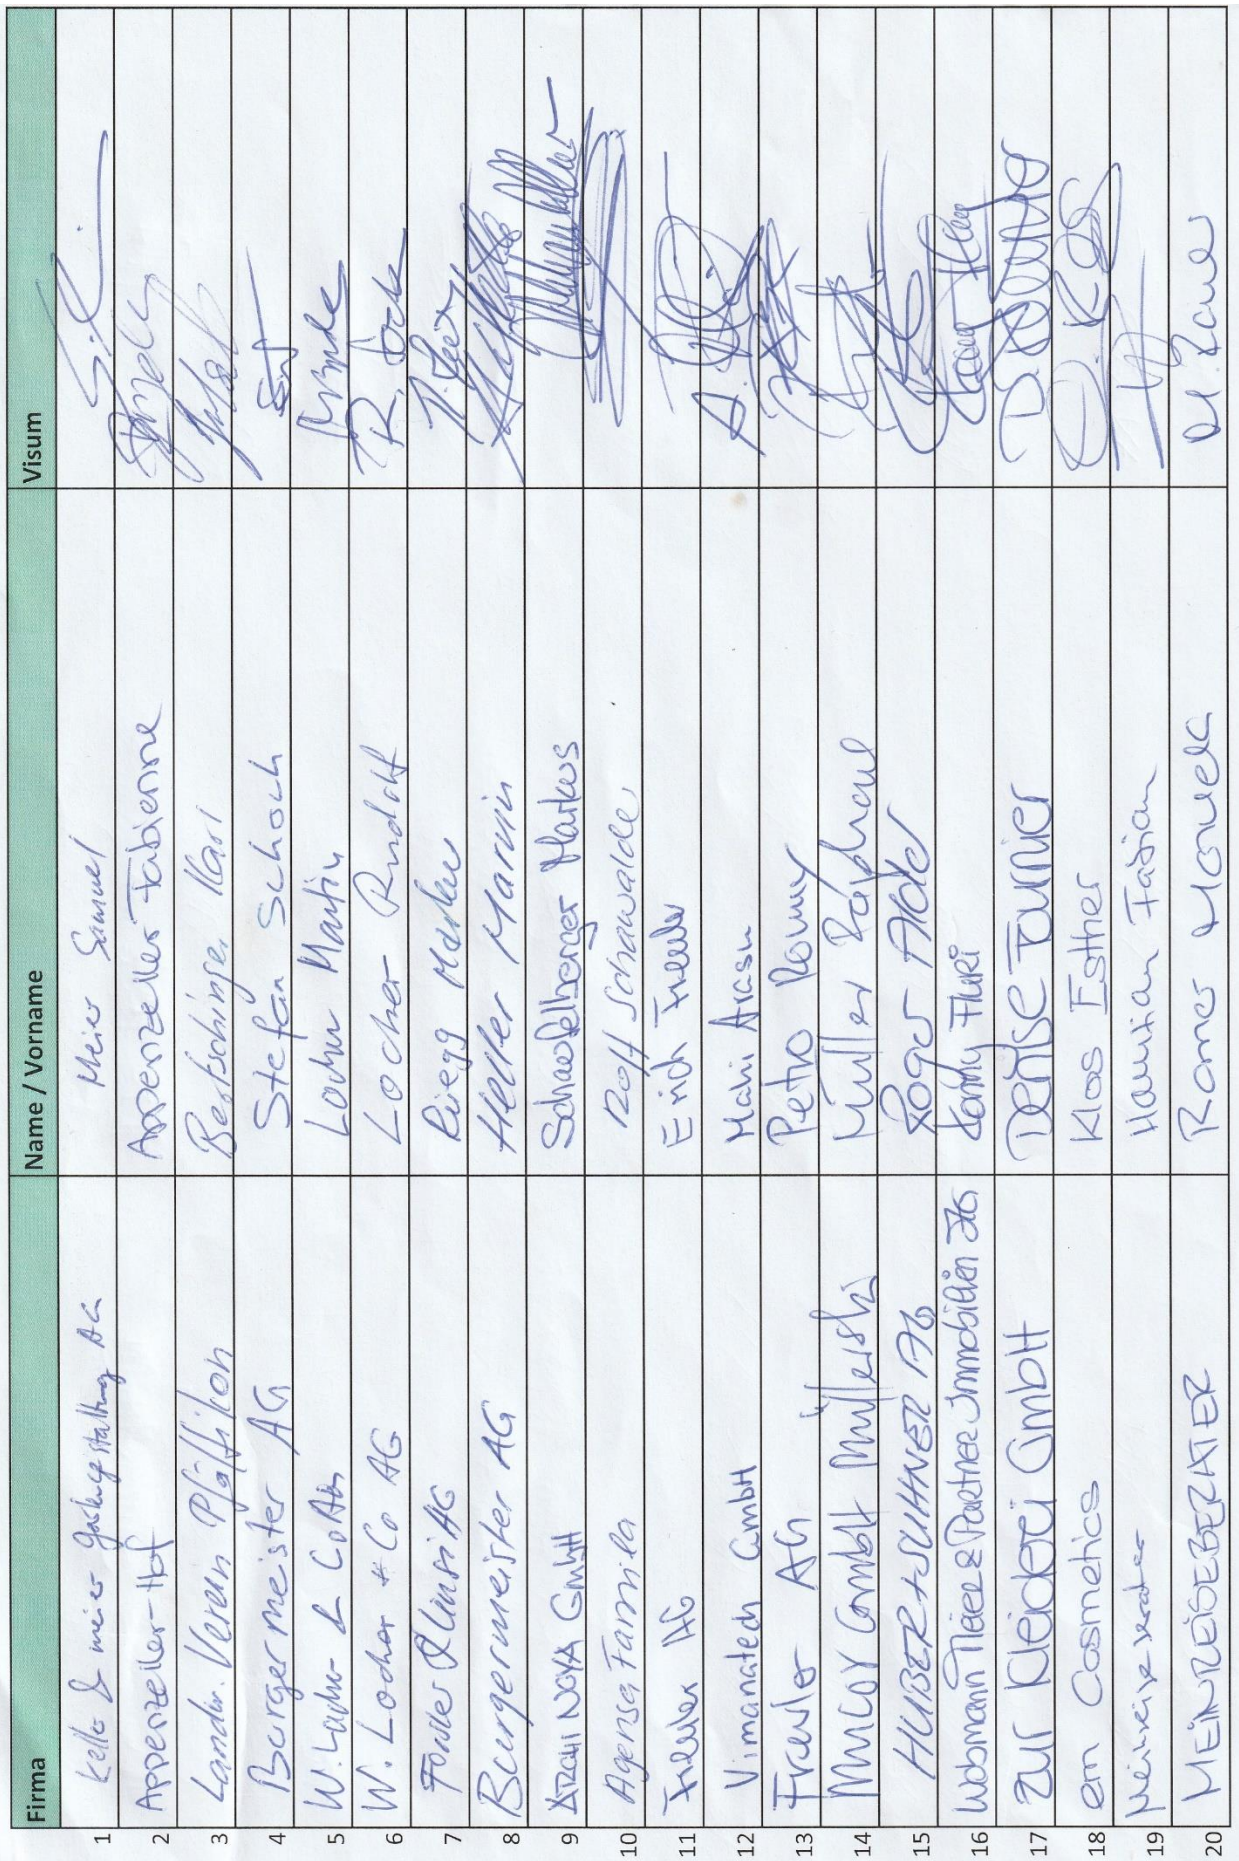 Firma Name / Vorname Visum
1 Keller & meier Gartengestaltung AG Meier Samuel
2 Appenzeller-Hof Appenzeller Fabienne
3 Landw. Verein Pfäffikon Bertschinger Karl
4 Burgermeister AG Stefan Schoch
5 W. Locher & Co AG Locher Martin
6 W. Locher + Co AG Locher Rudolf R. Locher
7 Forster & Linsi AG Rüegg Markus
8 Burgermeister AG Heller Marvin
9 ARCHI NOVA GmbH Schaufelberger Markus
10 Agensa Familia Rolf Schawalder
11 Freuler AG Erich Freuler
12 Vimanatech GmbH Mahi Arasu
13 Freuler AG Petro Romy
14 Mucov GmbH Müllerski Müller Raphael
15 HUBER+SUHNER AG Roger Alder
16 Wobmann Meier & Partner Immobilien AG Conny Fluri
17 zur Kleiderei GmbH Denise Fournier D. Fournier
18 em Cosmetics Klaas Esther
19 Meinreiseberater Hauritian Fabian
20 MEINREISEBERATER Romer Manuela M. Romer